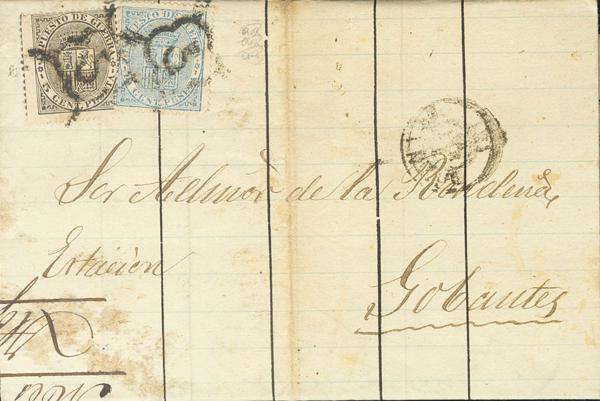 IMPUESTO DE GUERRA
5 CENT. PESETA
IMPUESTO DE GUERRA
5 CENT. PESETA
Sor Admòr de la Rondeña
Estación
Gobantes